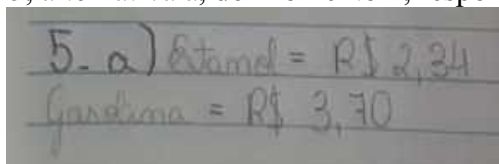 5-a) Etamol = R$ 2,34
Gasolina = R$ 3,70